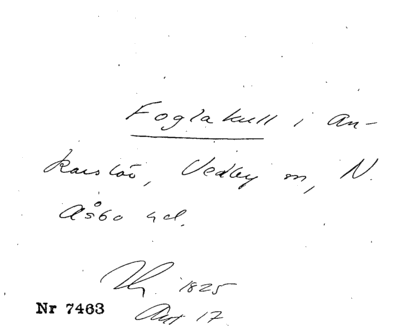 Foglakull i An-
karslöv, Vedby sn, N.
Åsbo hd.
1825
Akt 17
Nr 7463